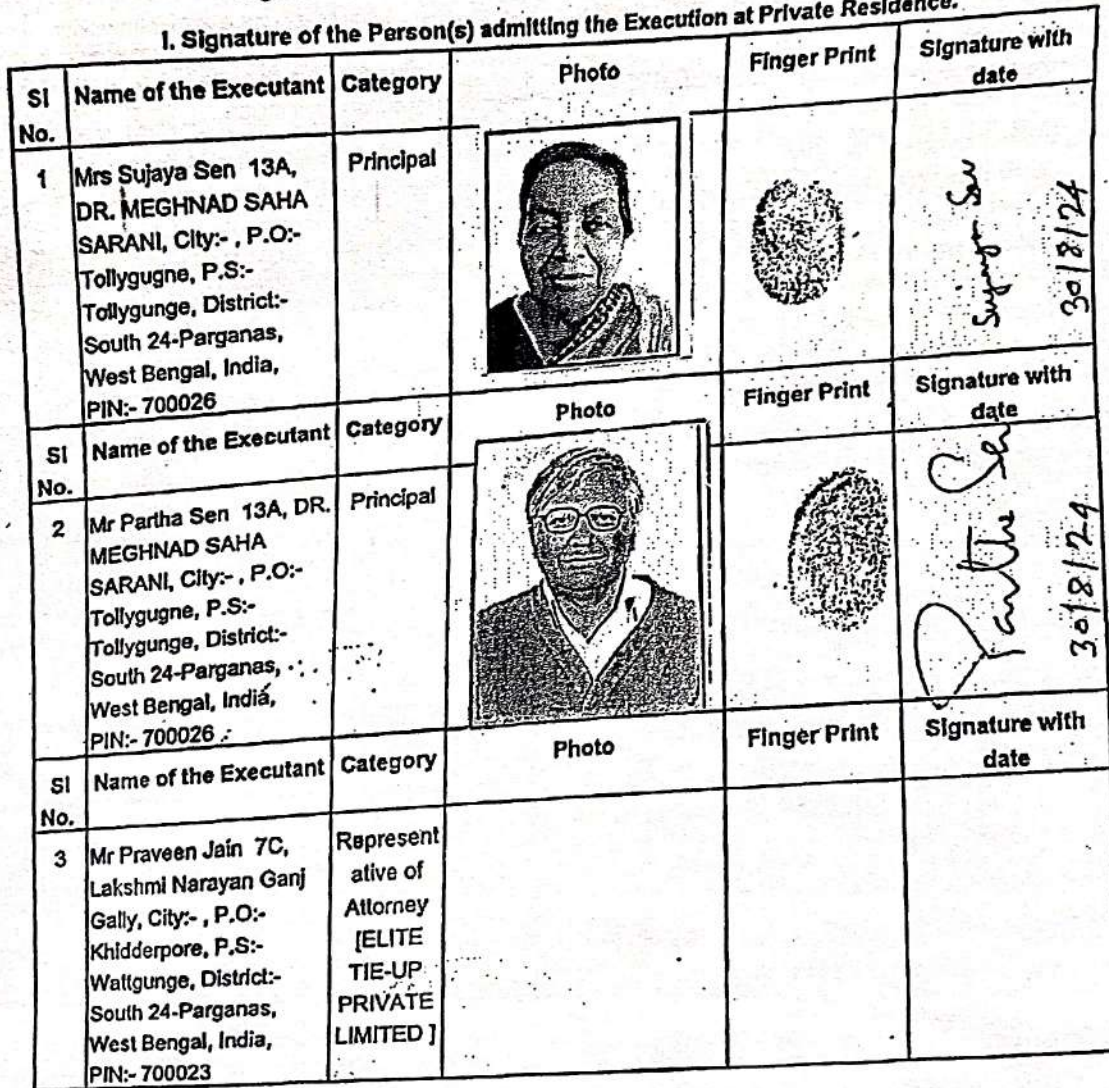 I. Signature of the Person(s) admitting the Execution at Private Residence.
Sl No. Name of the Executant Category Photo Finger Print Signature with date
1 Mrs Sujaya Sen 13A, Principal
DR. MEGHNAD SAHA
SARANI, City:- , P.O:-
Tollygugne, P.S:-
Tollygunge, District:-
South 24-Parganas,
West Bengal, India,
PIN:- 700026
Sujaya Sen
30/8/24
Sl No. Name of the Executant Category Photo Finger Print Signature with date
2 Mr Partha Sen 13A, DR. Principal
MEGHNAD SAHA
SARANI, City:- , P.O:-
Tollygugne, P.S:-
Tollygunge, District:-
South 24-Parganas,
West Bengal, India,
PIN:- 700026
Partha Sen
30/8/24
Sl No. Name of the Executant Category Photo Finger Print Signature with date
3 Mr Praveen Jain 7C,
Lakshmi Narayan Ganj
Gally, City:- , P.O:-
Khidderpore, P.S:-
Wattgunge, District:-
South 24-Parganas,
West Bengal, India,
PIN:- 700023
Represent
ative of
Attorney
[ELITE
TIE-UP
PRIVATE
LIMITED ]